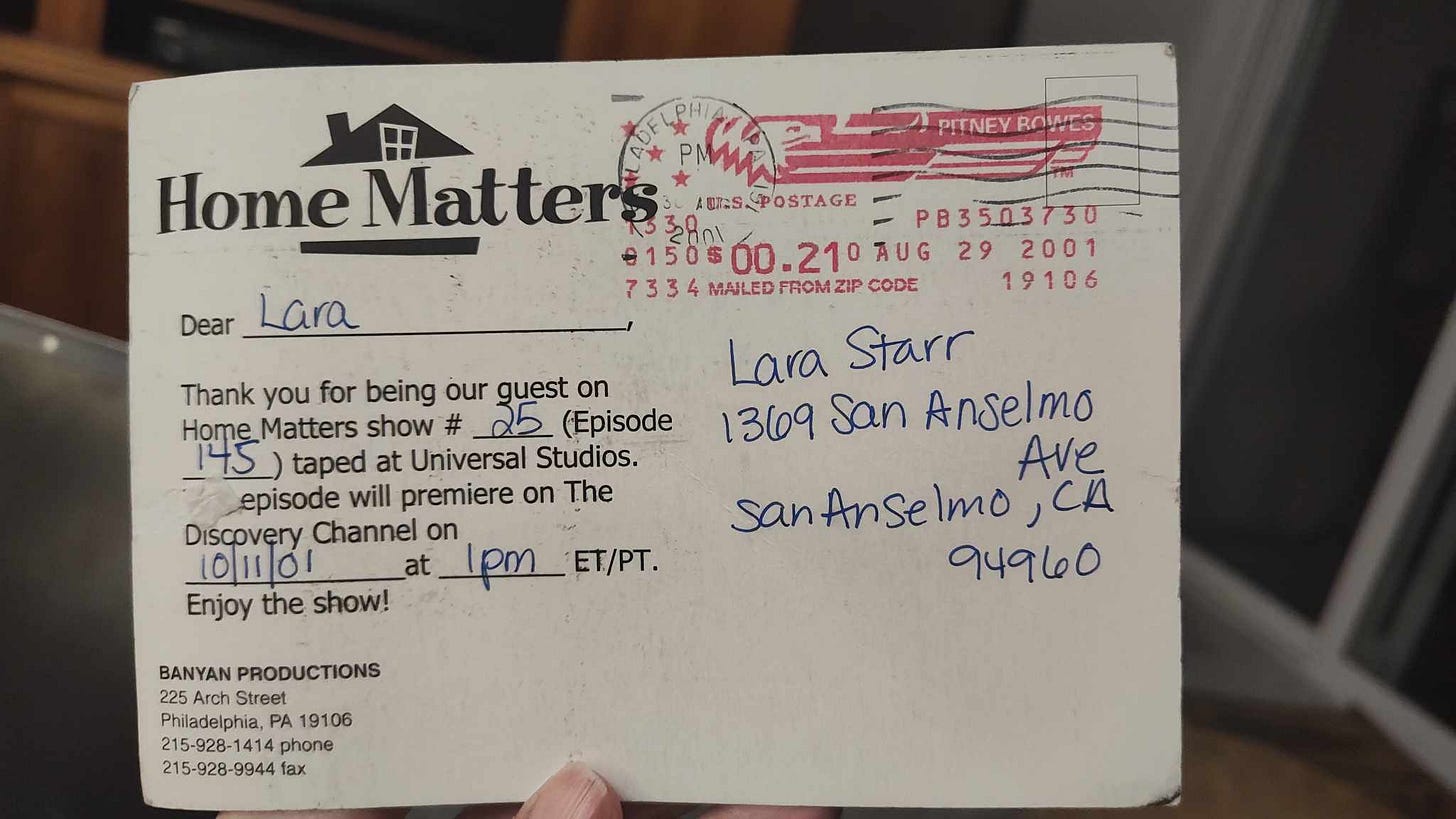 Home Matters
Dear Lara,
Thank you for being our guest on
Home Matters show # 25 (Episode
145) taped at Universal Studios.
episode will premiere on The
Discovery Channel on
10/11/01 at 1pm ET/PT.
Enjoy the show!
BANYAN PRODUCTIONS
225 Arch Street
Philadelphia, PA 19106
215-928-1414 phone
215-928-9944 fax
PHILADELPHIA PA
PM
2001
PITNEY BOWES
TM
U.S. POSTAGE
PB3503730
$00.210 AUG 29 2001
7334 MAILED FROM ZIP CODE 19106
Lara Starr
1369 San Anselmo
Ave
San Anselmo, CA
94960